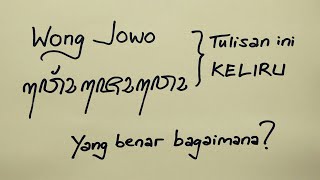 Wong Jowo
ꦮꦺꦴꦁꦗꦺꦴꦮꦺꦴ
Tulisan ini
KELIRU
Yang benar bagaimana?